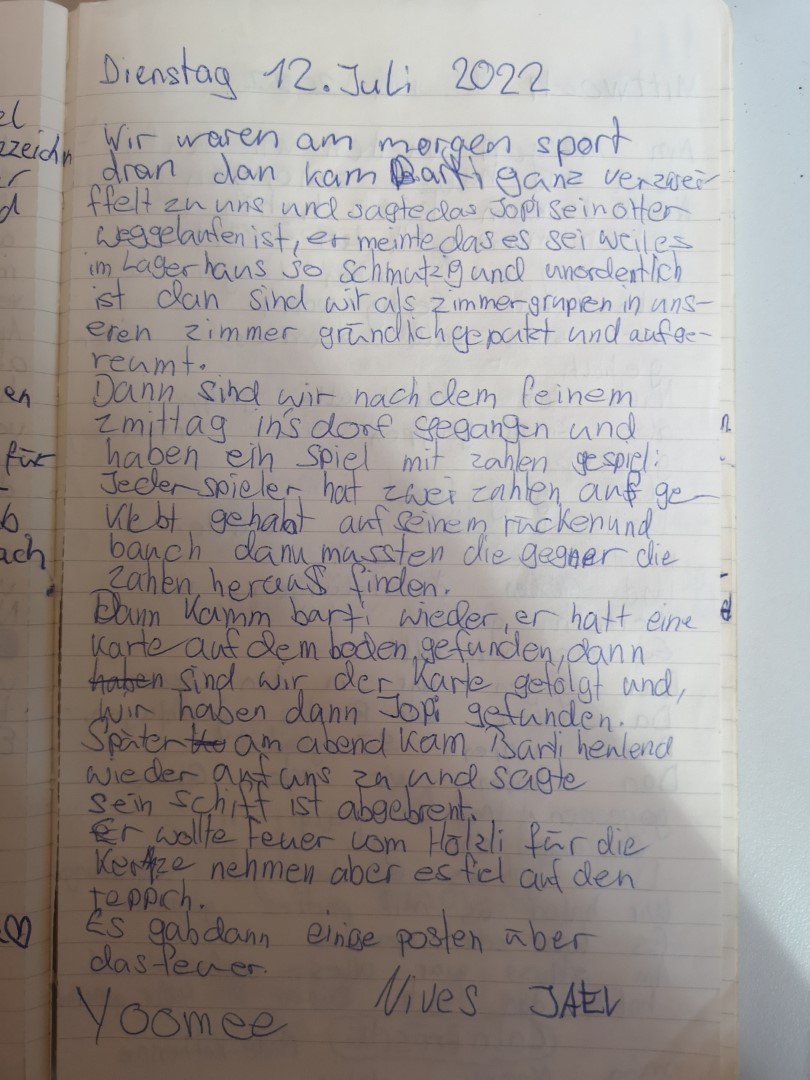 Dienstag 12. Juli 2022
Wir waren am morgen sport
dran dan kam Barti ganz verzwei-
ffelt zu uns und sagte das Jopi sein otter
weggelaufen ist, er meinte das es sei weil es
im Lagerhaus so schmutzig und unordentlich
ist dan sind wir als zimmergruppen in uns-
eren zimmer gründlich geputzt und aufge-
reumt.
Dann sind wir nach dem feinem
zmittag in's dorf gegangen und
haben ein spiel mit zahlen gespiel:
Jeder spieler hat zwei zahlen auf ge-
klebt gehabt auf seinem rücken und
bauch dann mussten die gegner die
zahlen heraus finden.
Dann kamm barti wieder, er hatt eine
karte auf dem boden gefunden, dann
haben sind wir der Karte gefolgt und,
wir haben dann Jopi gefunden.
Später am abend kam Barti heulend
wieder auf uns zu und sagte
sein schiff ist abgebrent.
Er wollte feuer vom Hölzli für die
Kertze nehmen aber es fiel auf den
teppich.
Es gab dann einige posten über
das feuer.
Yoomee Nives JAEL
el
r
d
en
für
b
ach